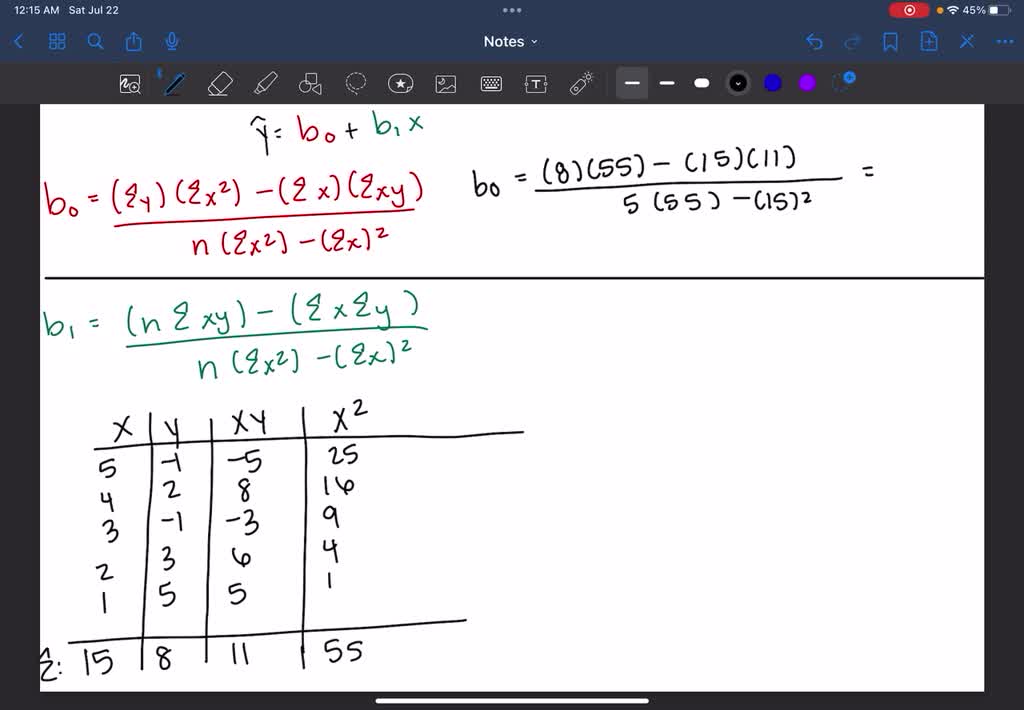 12:15 AM Sat Jul 22
45%
Notes
ŷ = b₀ + b₁x
b₀ = (Σy)(Σx²) - (Σx)(Σxy)
n(Σx²) - (Σx)²
b₀ = (8)(55) - (15)(11) =
5(55) - (15)²
b₁ = (nΣxy) - (ΣxΣy)
n(Σx²) - (Σx)²
X Y XY X²
5 -1 -5 25
4 2 8 16
3 -1 -3 9
2 3 6 4
1 5 5 1
Σ: 15 8 11 55